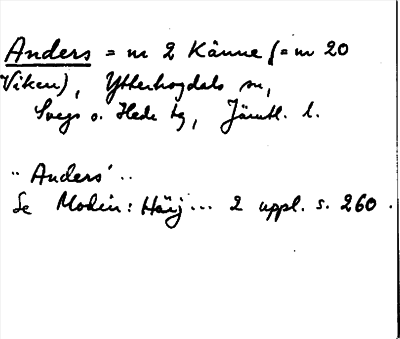 Anders = nr 2 Känne (= nr 20
Viken), Ytterhogdals sn,
Svegs o. Hede tg, Jämtl. l.
"Anders"..
Se Modin: Härj... 2 uppl. s. 260.